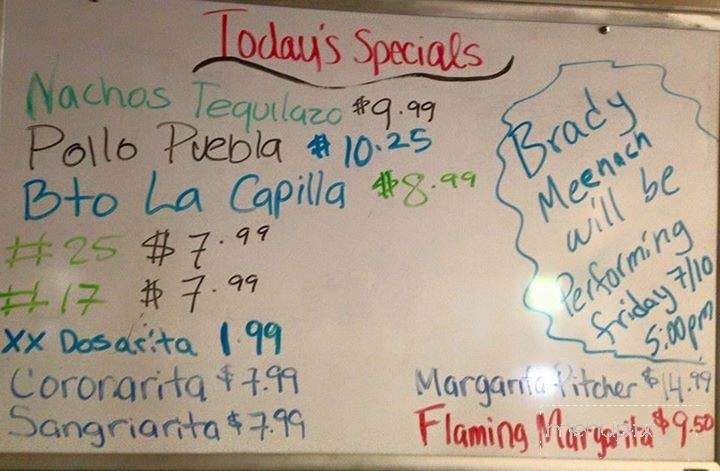 Today's Specials
Nachos Tequilazo $9.99
Pollo Puebla $10.25
Bto La Capilla $8.99
#25 $7.99
#17 $7.99
XX Dosarita 1.99
Cororarita $7.99
Sangriarita $7.99
Brady
Meenach
will be
Performing
friday 7/10
5:00pm
Margarita Pitcher $14.99
Flaming Margarita $9.50